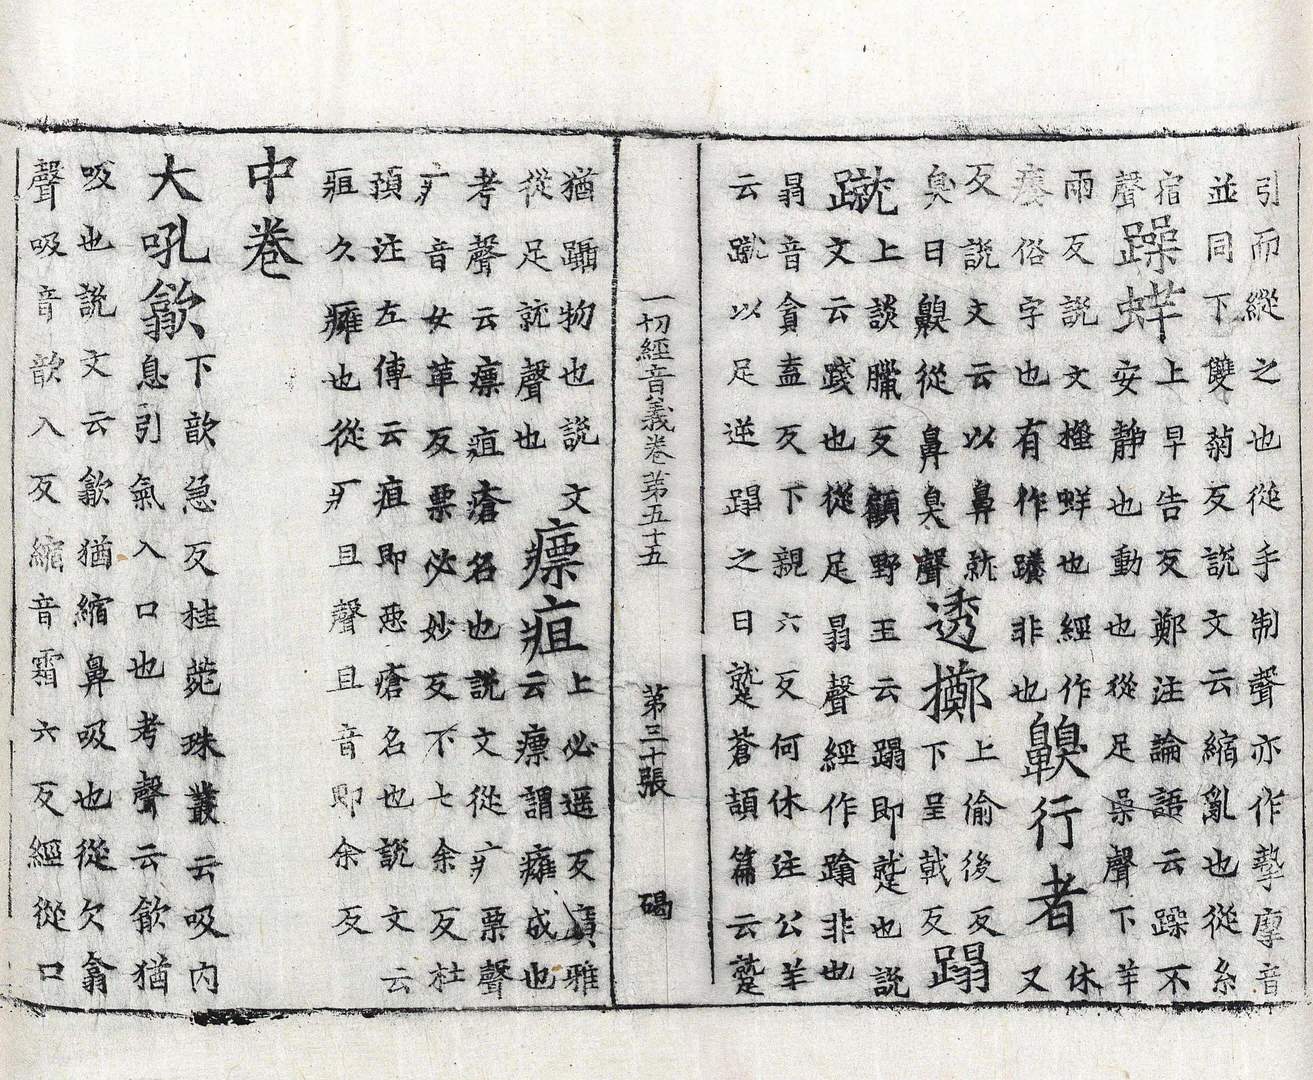 引而縱之也從手制聲亦作摯摩音
並同下雙菊反説文云縮亂也從糸
宿
躁蛘
上早告反鄭注論語云躁不
聲
安靜也動也從足喿聲下羊
雨反説文搔蛘也經作
癢俗字也有作蹸非也
齅行者
休
又
反説文云以鼻就
臭曰齅從鼻臭聲
透擲
上偷後反
下呈戟反
蹋
蹴
上談臘反顧野王云蹋即蹵也説
文云踐也從足㬱聲經作蹹非也
㬱音貪盍反下親六反何休注公羊
云蹴以足逆蹋之曰蹵蒼頡篇云蹵
一切經音義卷第五十五 第三十張 碣
猶躡物也説文
從足就聲也
瘭疽
上必遥反廣雅
云瘭謂癰成也
考聲云瘭疽瘡名也説文從疒票聲
疒音女革反票必妙反下七余反杜
預注左傳云疽即惡瘡名也説文云
疽久癰也從疒且聲且音即余反
中卷
大吼歙
下歆急反桂菀珠叢云吸内
息引氣入口也考聲云歙猶
吸也説文云歙猶縮鼻吸也從欠翕
聲吸音歆入反縮音霜六反經從口